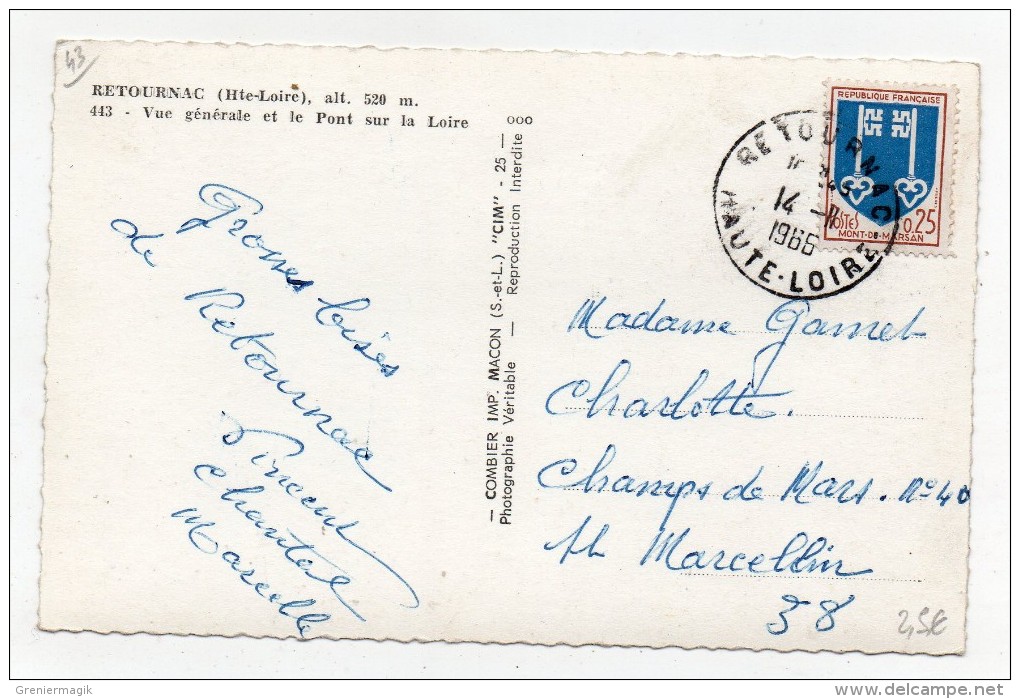 43
RETOURNAC (Hte-Loire), alt. 520 m.
443 - Vue générale et le Pont sur la Loire
Grosses bises
de Retournac
Vincent
Chantal
Marcelle
— COMBIER IMP. MACON (S.-et-L.) "CIM" - 25 —
Photographie Véritable — Reproduction Interdite
ooo
REPUBLIQUE FRANÇAISE
POSTES
0.25
MONT-DE-MARSAN
RETOURNAC
14 - 11
1966
HAUTE-LOIRE
Madame Gamet
Charlotte.
Champs de Mars. N° 40
St Marcellin
38
2,5€
Greniermagik
http://www.delcampe.net